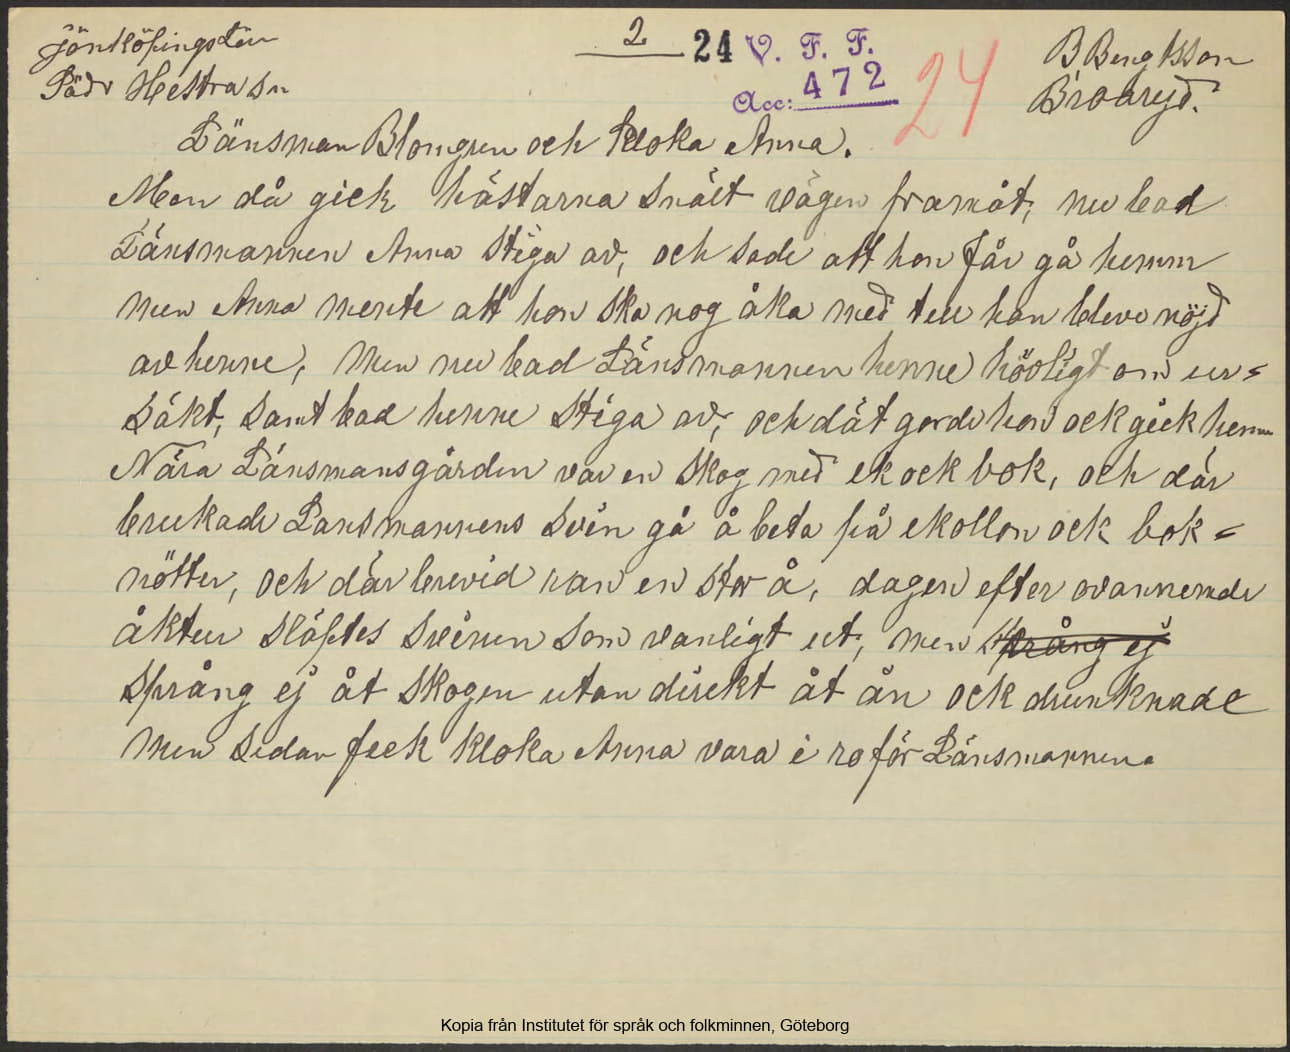 Jönköpings Län
Södr Hestra sn
2
24 V. F. F.
Acc: 472
24
B Bengtsson
Broaryd.
Länsman Blomgren och Kloka Anna.
Men då gick hästarna snält vägen framåt, nu bad
Länsmannen Anna stiga av, och sade att hon får gå hemm
men Anna mente att hon ska nog åka med tell han bleve nöjd
av henne, Men nu bad Länsmannen henne hövligt om ur=
säkt, samt bad henne stiga av, och dät gorde hon ock gick hemm
Nära Länsmansgården var en skog med ek ock bok, och där
brukade Lansmannens svin gå å beta på ekollon ock bok=
nötter, och där brevid ran en stor å, dagen efter ovannemde
åktur släptes svinen som vanligt ut, men språng ej
språng ej åt skogen utan direkt åt ån ock drunknade
Men sedan feck kloka Anna vara i ro för Länsmannen.
Kopia från Institutet för språk och folkminnen, Göteborg